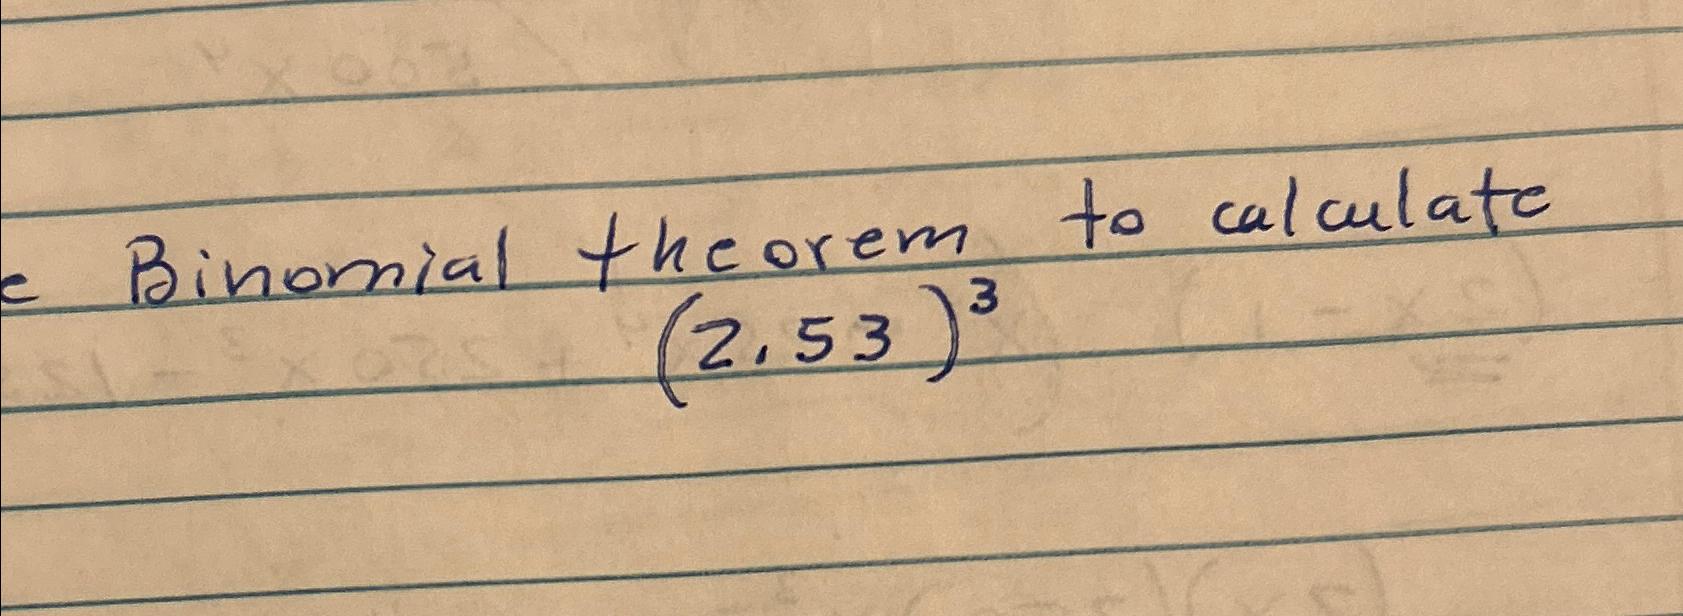 e Binomial theorem to calculate
(2.53)³